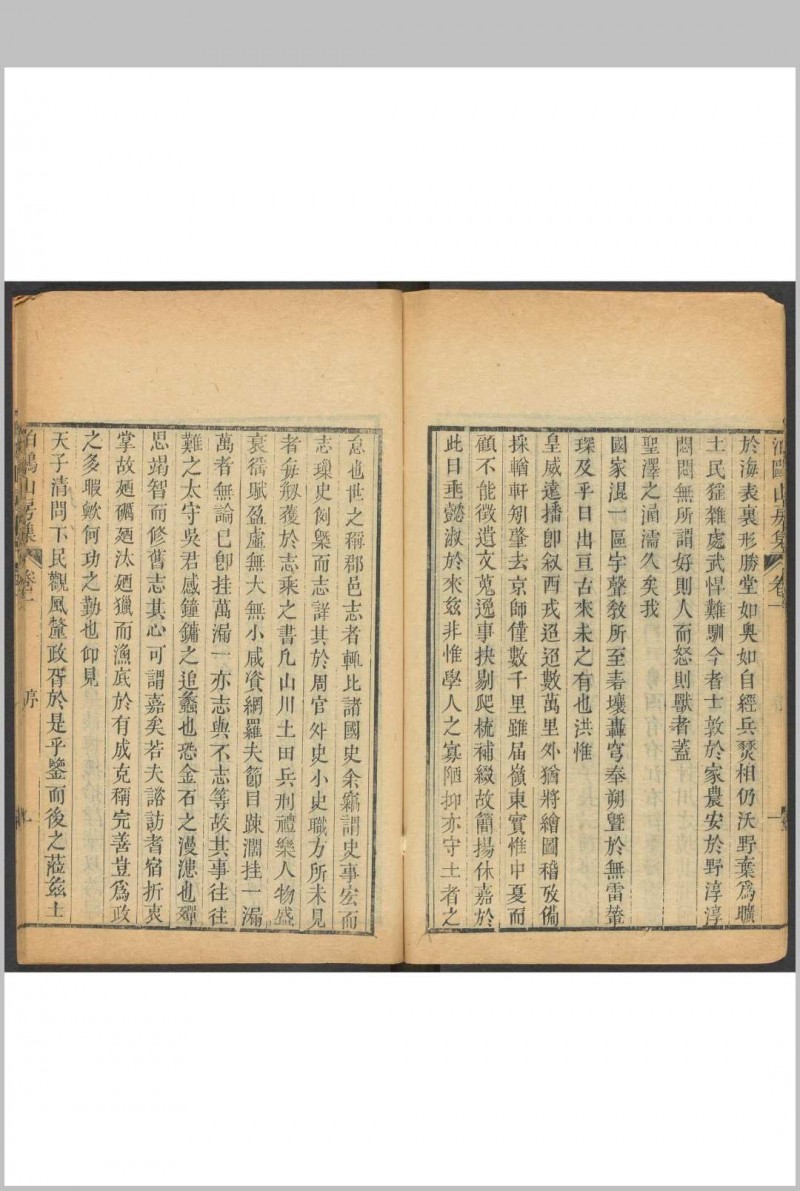 泊鷗山房集 卷一
於海表裏形勝堂如奧如自經兵燹相仍沃野葉爲曠
土民猺雜處武悍難馴今者士敦於家農安於野淳淳
悶悶無所謂好則人而怒則獸者蓋
聖澤之涵濡久矣我
國家混一區宇聲敎所至耆壤轟穹奉朔曁於無雷葷
琛及乎日出亘古來未之有也洪惟
皇威遠播卽敍西戎迢迢數萬里外猶將繪圖稽攷備
採輶軒矧肇去京師僅數千里雖届嶺東實惟中夏而
顧不能徵遺文蒐逸事抉剔爬梳補綴故簡揚休嘉於
此日乖懿淑於來玆非惟學人之寡陋抑亦守土者之
怠也世之稱郡邑志者輒比諸國史余竊謂史事宏而
志瑣史例槩而志詳其於周官外史小史職方所未見
者每剏獲於志乘之書凡山川土田兵刑禮樂人物盛
衰徭賦盈虛無大無小咸資網羅夫節目踈濶挂一漏
萬者無論已卽挂萬漏一亦志與不志等故其事往往
難之太守吳君感鐘鏞之追蠡也恐金石之漫漶也殫
思竭智而修舊志其心可謂嘉矣若夫諮訪耆宿折衷
掌故廼礪廼汰廼獵而漁底於有成克稱完善豈爲政
之多暇歟何功之勤也仰見
天子清問下民觀風釐政胥於是乎鑒而後之蒞玆土
泊鷗山房集 卷一 序